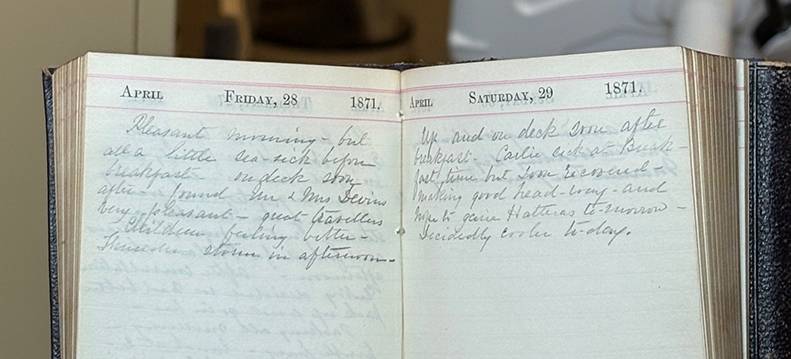 April Friday, 28 1871.
Pleasant morning - but
all a little sea-sick before
breakfast on deck soon
after - found Mr & Mrs Devins
very pleasant - great travellers
Children feeling better -
Thunder storm in afternoon -
April Saturday, 29 1871.
Up and on deck soon after
breakfast. Carlie sick at Break-
fast time but soon recovered
making good head-way - and
hope to gain Hatteras to-morrow -
Decidedly cooler to-day.